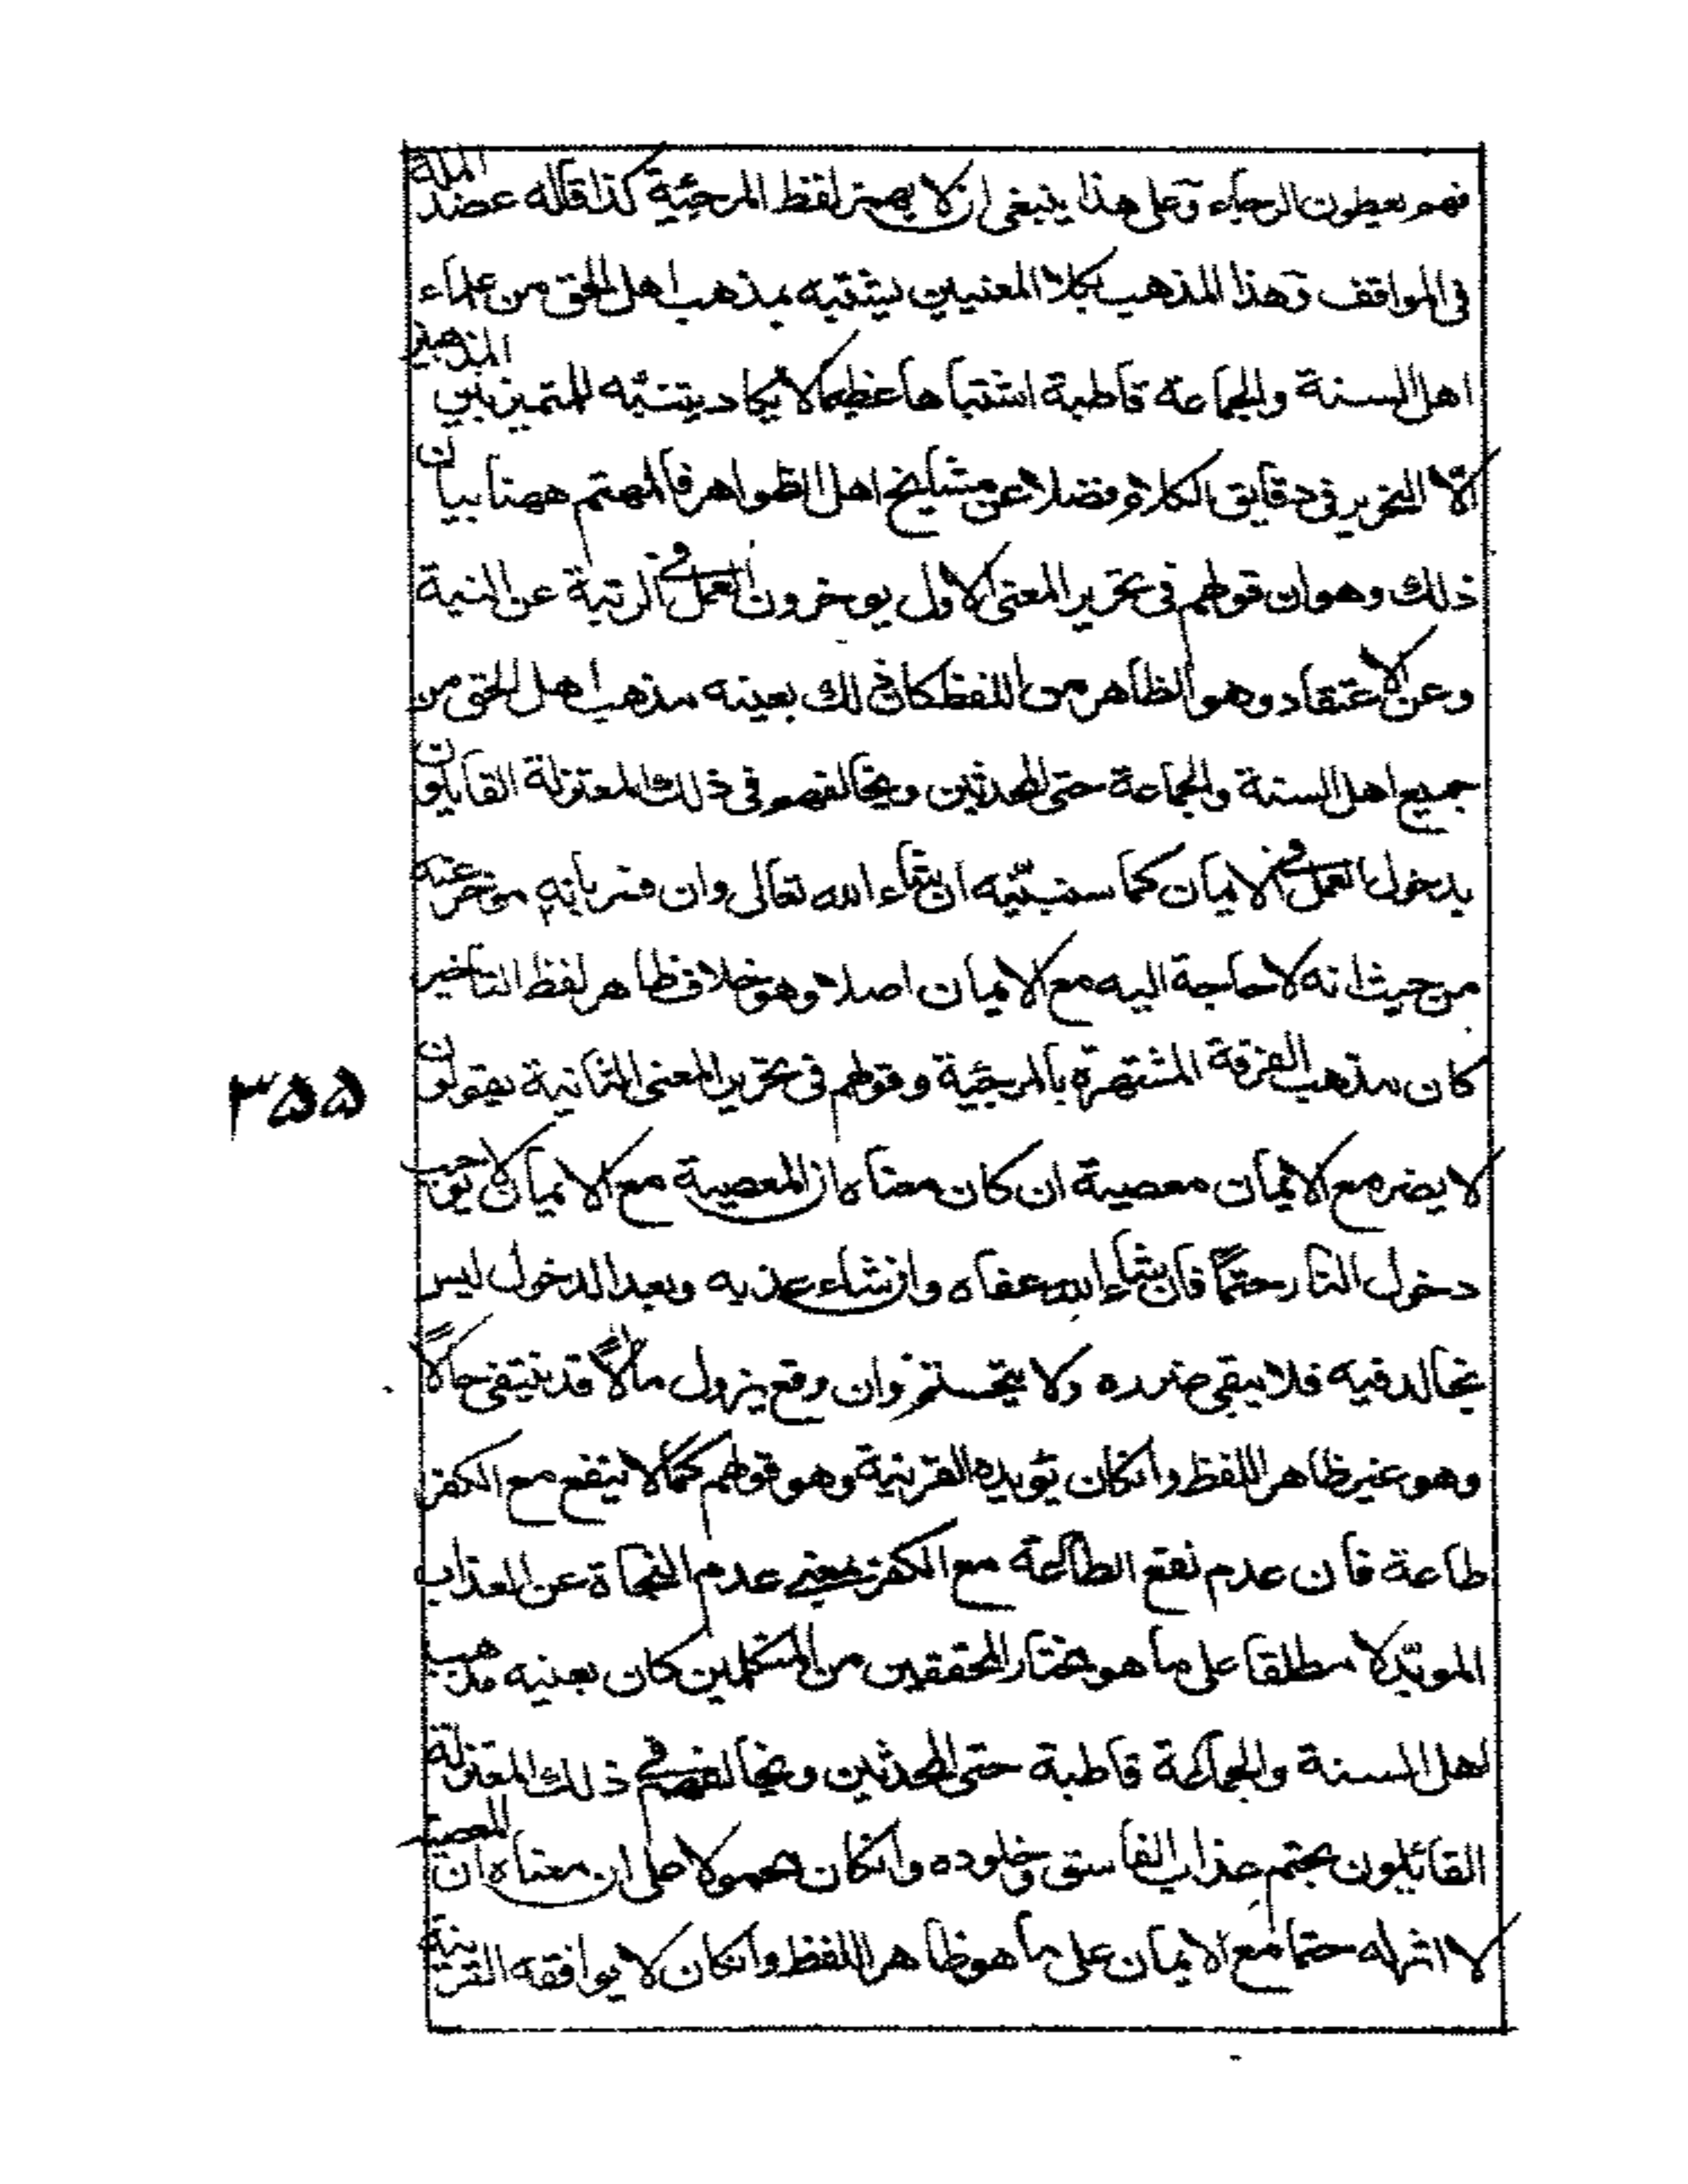 فهم يعطون الرجاء وعلى هذا ينبغى ان لا يهمز لفظ المرجئية كذا قاله عضد الملة
فى المواقف وهذا المذهب بكلا المعنيين يشتبه بمذهب اهل الحق من علماء
اهل السنة والجماعة قاطبة اشتباها عظيما لا يكاد يتنبه للتميز بين المذهبين
الا النحرير فى دقايق الكلام فضلا عن مشايخ اهل الظواهر فالمهتم ههنا بيان
ذلك وهو ان قولهم فى تحرير المعنى الاول يوخرون العمل فى الرتبة عن النية
وعن الاعتقاد وهو الظاهر من اللفظ كان ذلك بعينه مذهب اهل الحق من
جميع اهل السنة والجماعة حتى المحدثين ويخالفهم فى ذلك المعتزلة القايلون
بدخول العمل فى الايمان كما سنبينه ان شاء الله تعالى وان فسر بانه موخر عنه
من حيث انه لا حاجة اليه مع الايمان اصلا وهو خلاف ظاهر لفظ التاخير
كان مذهب الفرقة المشتهرة بالمرجئية وقولهم فى تحرير المعنى الثانية يقولون
لا يضر مع الايمان معصية ان كان معناه ان المعصية مع الايمان لا توجب
دخول النار حتماً فان شاء الله عفاه وان شاء عذبه وبعد الدخول ليس
بخالد فيه فلا يبقى ضرره ولا وان وقع يزول مآلاً قد ينتفى حالاً
وهو غير ظاهر اللفظ وانكان تؤيده القرينية وهو قولهم كما لا ينفع مع الكفر
طاعة فان عدم نفع الطاعة مع الكفر بمعنى عدم النجاة عن العذاب
الموبّد لا مطلقا على ما هو مختار المحققين من المتكلمين كان بعنيه مذهب
اهل السنة والجماعة قاطبة حتى المحدثين ويخالفهم فى ذلك المعتزلة
القائلون بحتم عذاب الفاسق وخلوده وانكان محمولا على ان معناه ان المعصية
لا اثر له حتما مع الايمان على ما هو ظاهر اللفظ وانكان لا يوافقه القرينة
٣٥٥